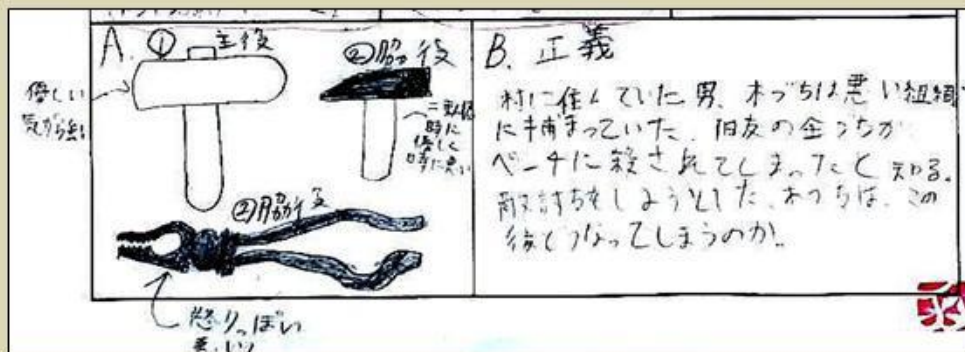 A. ① 主役
②脇役
優しい
気が弱い
二重人格
時に
優しく
時に悪い
②脇役
怒りっぽい
悪いやつ
B. 正義
村に住んでいた男、木づちは悪い組織
に捕まっていた。旧友の金づちが
ペンチに殺されてしまったと知る。
敵討ちをしようとした、木づちは、この
後どうなってしまうのか。